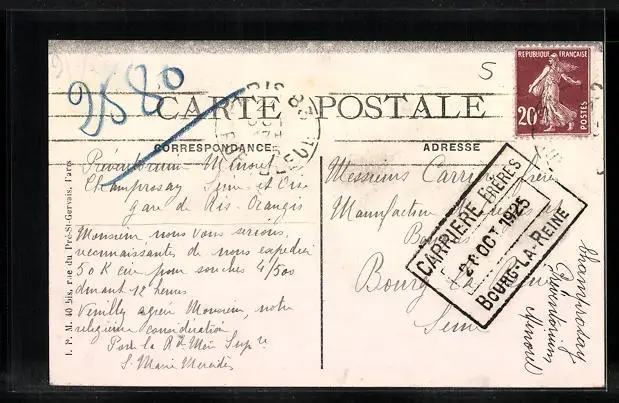 9580
5
CARTE POSTALE
CORRESPONDANCE
ADRESSE
REPUBLIQUE FRANÇAISE
20c
POSTES
Préventorium Minoret
Champrosay Seine et Oise
gare de Ris-Orangis
Monsieur, nous vous serions
reconnaissantes de nous expédier
50 K cire pour souches 4/500
durant 12 heures
Veuillez agréer Monsieur, notre
religieuse considération
Pour la Rde Mère Supre
S. Marie Mercédès
Messieurs Carrière Frères
Manufacture
Bourg La Reine
Seine
CARRIÈRE FRÈRES
21 OCT 1925
BOURG-LA-REINE
Champrosay
Préventorium
Minoret
I. P. M. 40 bis, rue du Pré-St-Gervais, Paris